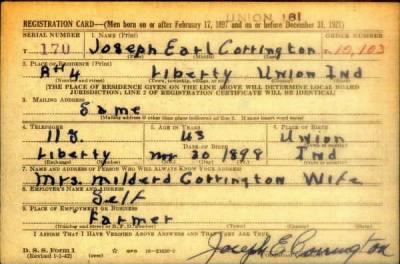 UNION 181
REGISTRATION CARD—(Men born on or after February 17, 1897 and on or before December 31, 1921)
SERIAL NUMBER 1. NAME (Print) ORDER NUMBER
T 170 Joseph Earl Corrington 10,103
(First) (Middle) (Last)
2. PLACE OF RESIDENCE (Print)
R#4 Liberty Union Ind
(Number and street) (Town, township, village, or city) (County) (State)
[THE PLACE OF RESIDENCE GIVEN ON THE LINE ABOVE WILL DETERMINE LOCAL BOARD
JURISDICTION; LINE 2 OF REGISTRATION CERTIFICATE WILL BE IDENTICAL]
3. MAILING ADDRESS
Same
(Mailing address if other than place indicated on line 2. If same insert word same)
4. TELEPHONE 5. AGE IN YEARS 6. PLACE OF BIRTH
43 Union
DATE OF BIRTH
Liberty 30 1898 Ind
(Exchange) (Number) (Mo.) (Day) (Yr.) (State or country)
7. NAME AND ADDRESS OF PERSON WHO WILL ALWAYS KNOW YOUR ADDRESS
Mrs. Milderd Corrington Wife
8. EMPLOYER'S NAME AND ADDRESS
Self
9. PLACE OF EMPLOYMENT OR BUSINESS
Farmer
I AFFIRM THAT I HAVE VERIFIED ABOVE ANSWERS AND THAT THEY ARE TRUE.
D. S. S. Form 1
(Revised 1-1-42) Joseph E Corrington